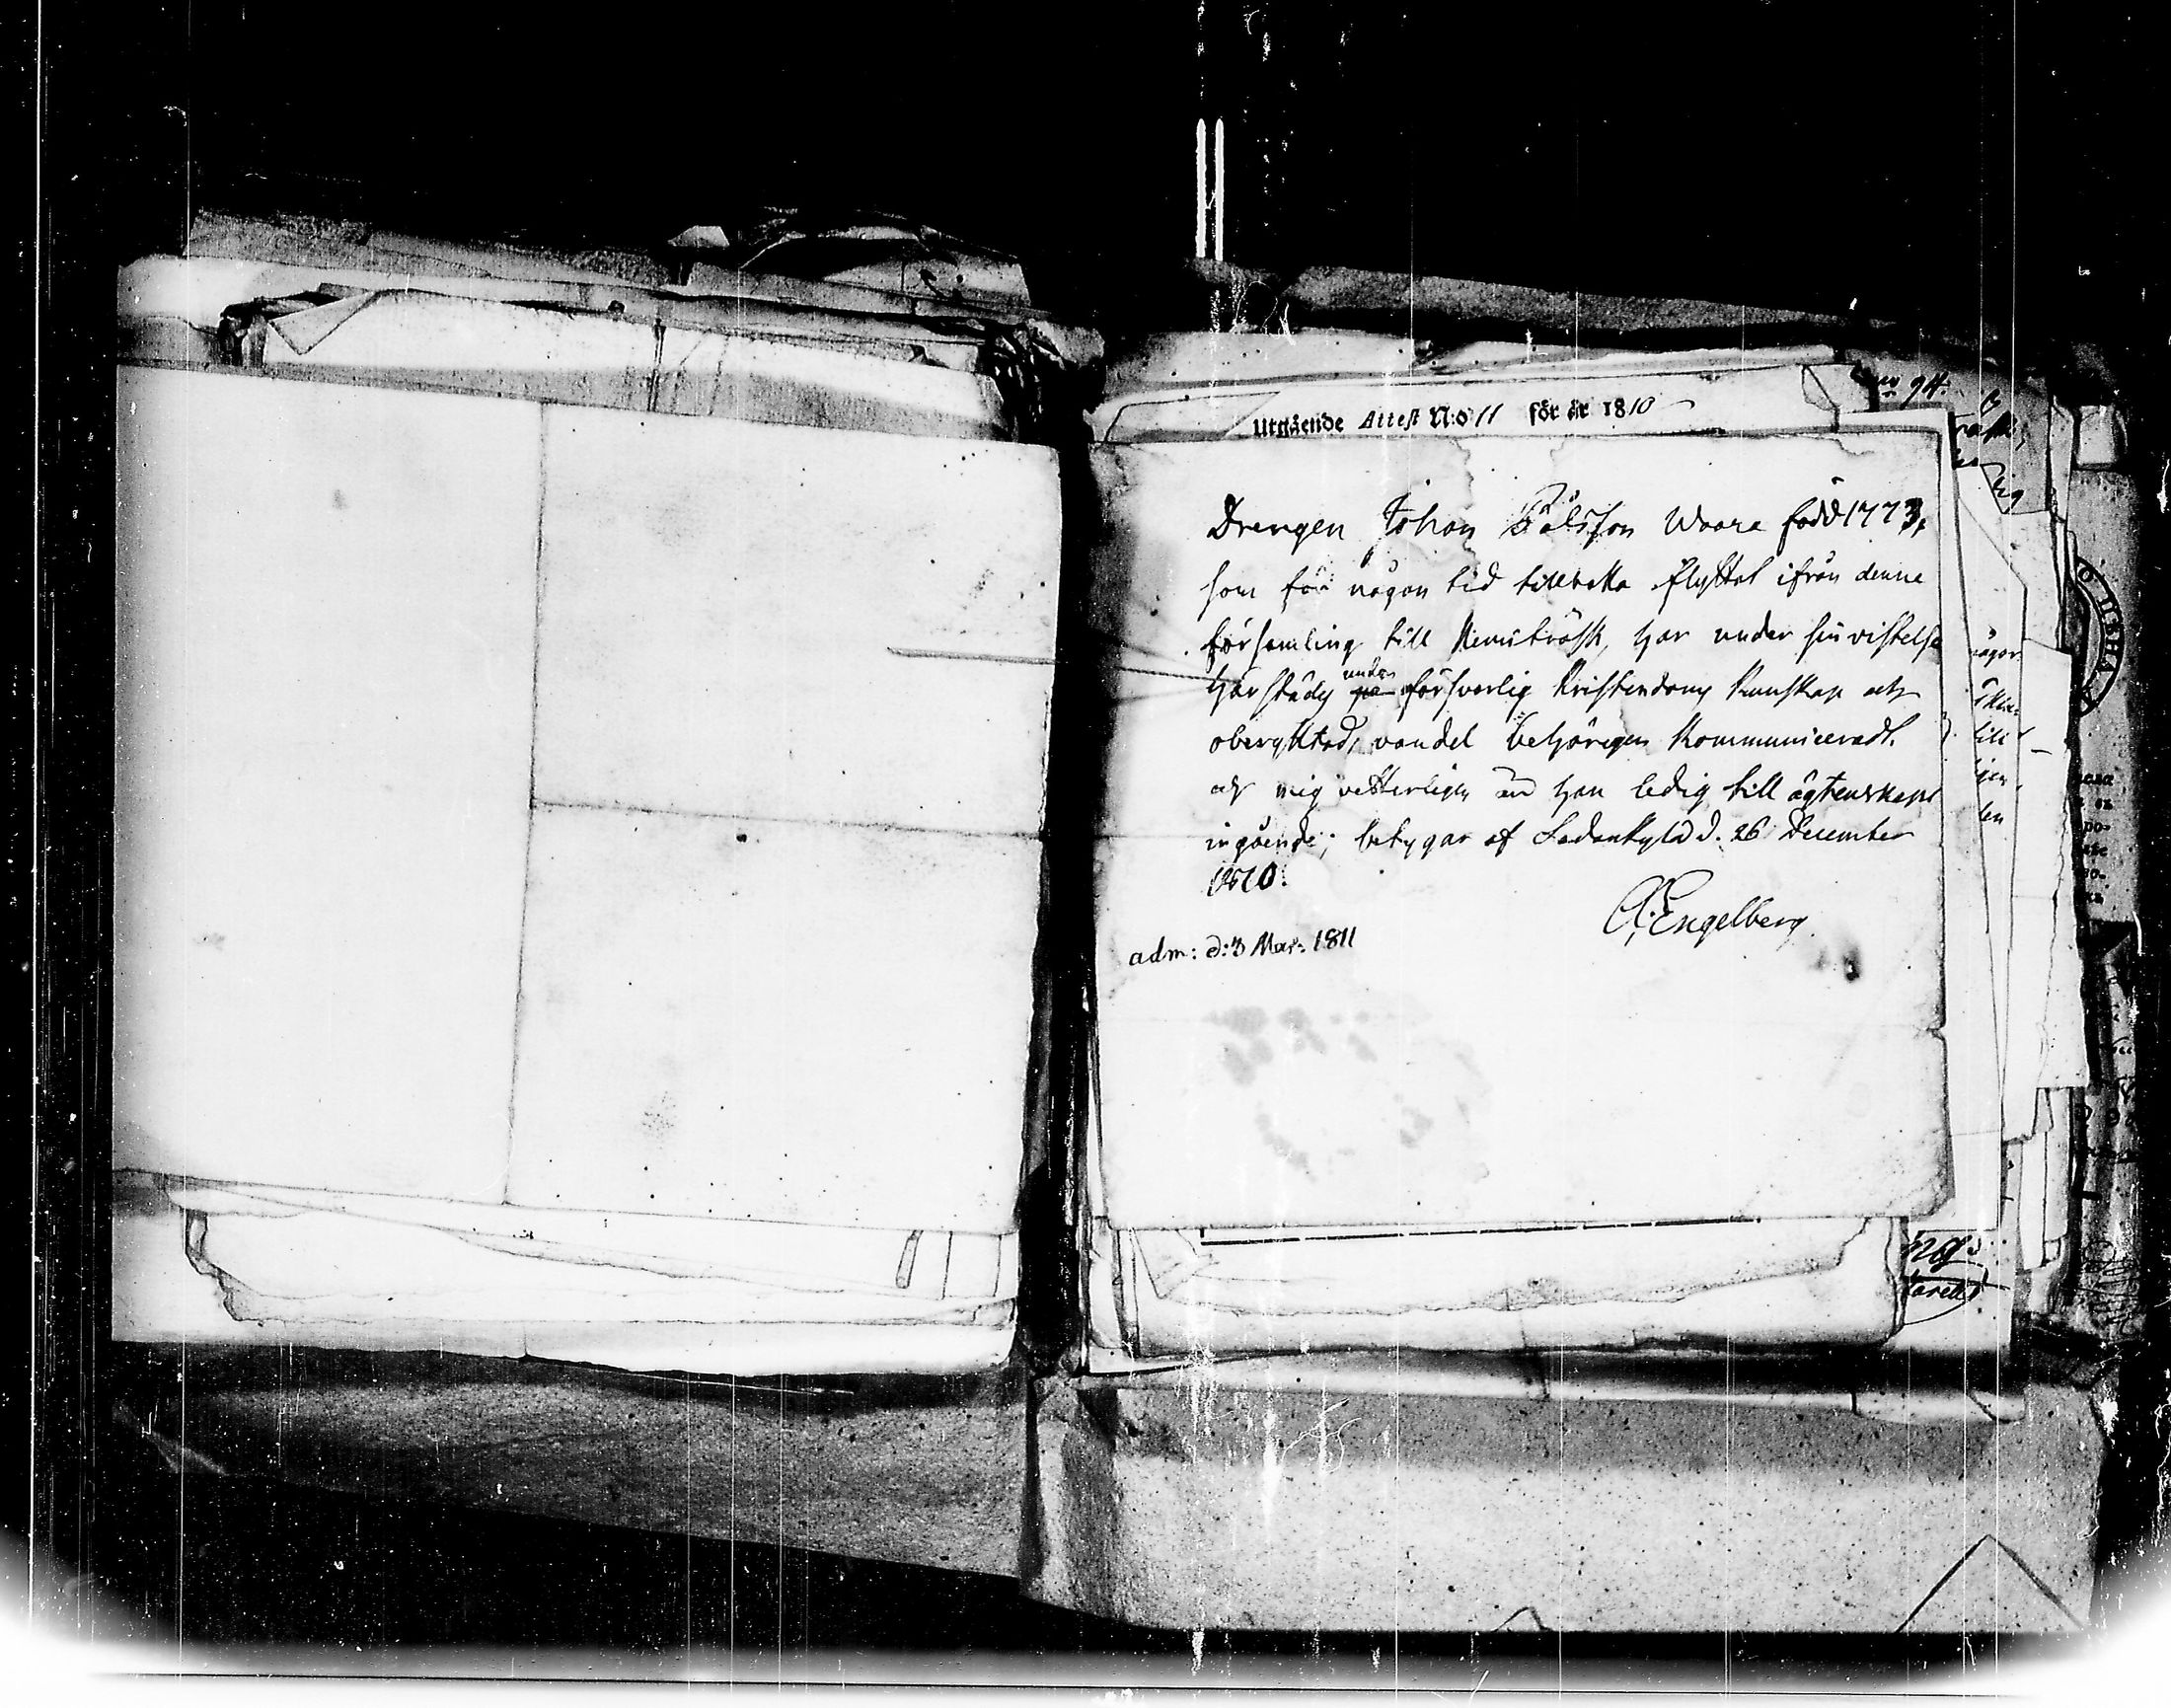 Utgående Attest N:o 11 för år 1810
Drengen Johan Pålsson Waara född 1773,
som för någon tid tillbakka flyttat ifrån denna
församling till Kemiträsk, har under sin vistelse
härstädes under försvarlig Kristendoms kunskap och
oberyktad vandel behörigen Kommunicerat.
och mig vetterligen är han ledig till ägtenskaps
ingående; betygar af Sodankylä d. 26 December
1810.
A. Engelberg
adm: d: 3 Mar: 1811
94.
till
len